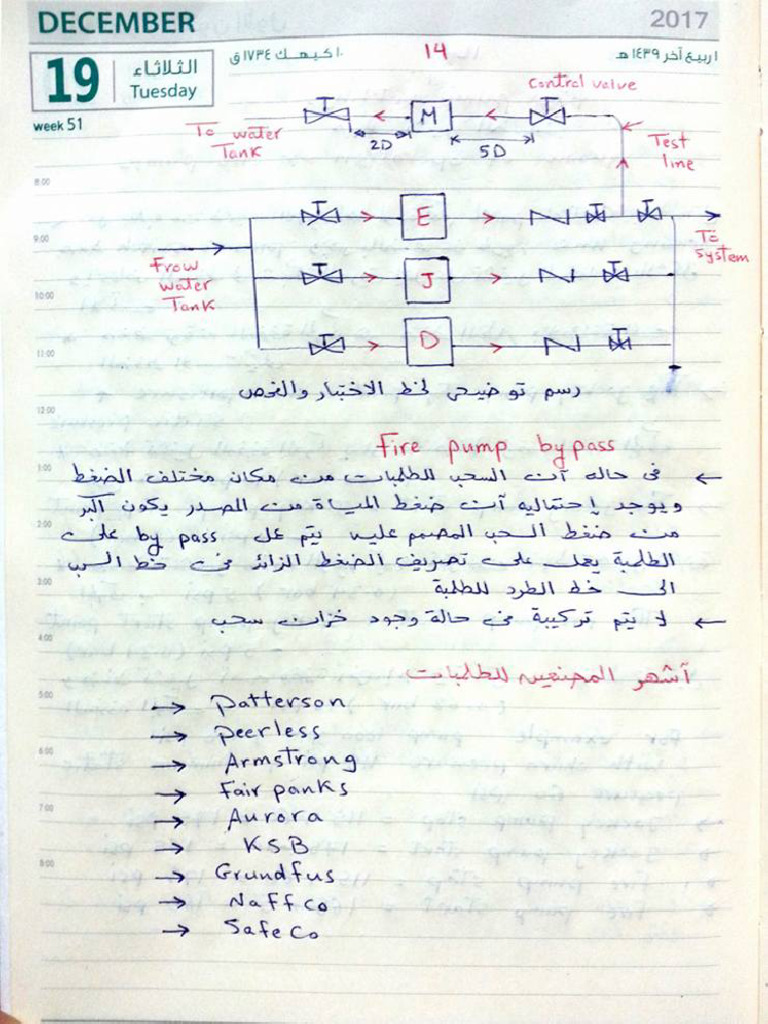 DECEMBER 2017
19
الثلاثاء
Tuesday
week 51
١٠ كيهك ١٧٣٤ ق
14
١ ربيع آخر ١٤٣٩ هـ
control valve
M
To water
Tank
2D
5D
Test
line
8:00
E
To
system
9:00
From
water
Tank
J
10:00
D
11:00
رسم توضيحى لخط الاختبار والفحص
12:00
Fire pump by pass
1:00
← فى حاله آن السحب للطلمبات من مكان مختلف الضغط
ويوجد إحتماليه آن ضغط المياة من المصدر يكون اكبر
2:00
من ضغط السحب المصمم عليه يتم عمل by pass على
الطلمبة يعمل على تصريف الضغط الزائد فى خط السحب
3:00
الى خط الطرد للطلمبة
← لا يتم تركيبة فى حالة وجود خزان سحب
4:00
آشهر المصنعين للطلمبات
5:00
→ Patterson
→ Peerless
6:00
→ Armstrong
→ Fair panks
7:00
→ Aurora
→ KSB
8:00
→ Grundfus
→ Naffco
→ Safe Co